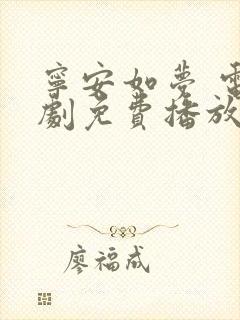 寧安如夢 電
劇免費播放
廖福成